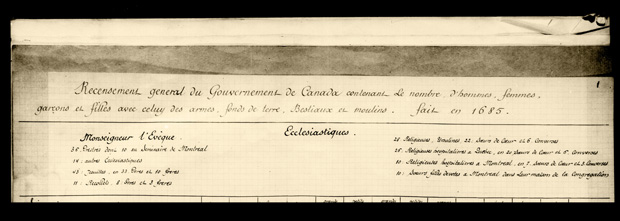 1
Recensement general du Gouvernement de Canada contenant Le nombre d'hommes, femmes,
garçons et filles avec celuy des armes, fonds de terre, Bestiaux et moulins. fait en 1685.
Ecclesiastiques.
Monseigneur l'Evêque.
35. Prestres dont 10 au Seminaire de Montreal
14: autres Ecclesiastiques
43: Jesuittes, en 33 Peres et 10 freres
11: Recollets, 8 Peres et 3 freres
28 Religieuses, Ursulines, 22. Sœurs de Cœur et 6. Converses
25: Religieuses hospitalieres a Quebec, en 20 sœurs de Cœur et 5. Converses
10: Religieuses hospitalieres a Montreal, en 7. sœurs de Cœur et 3 Converses
10: Sœurs filles devotes a Montreal dans leur maison de la Congregation